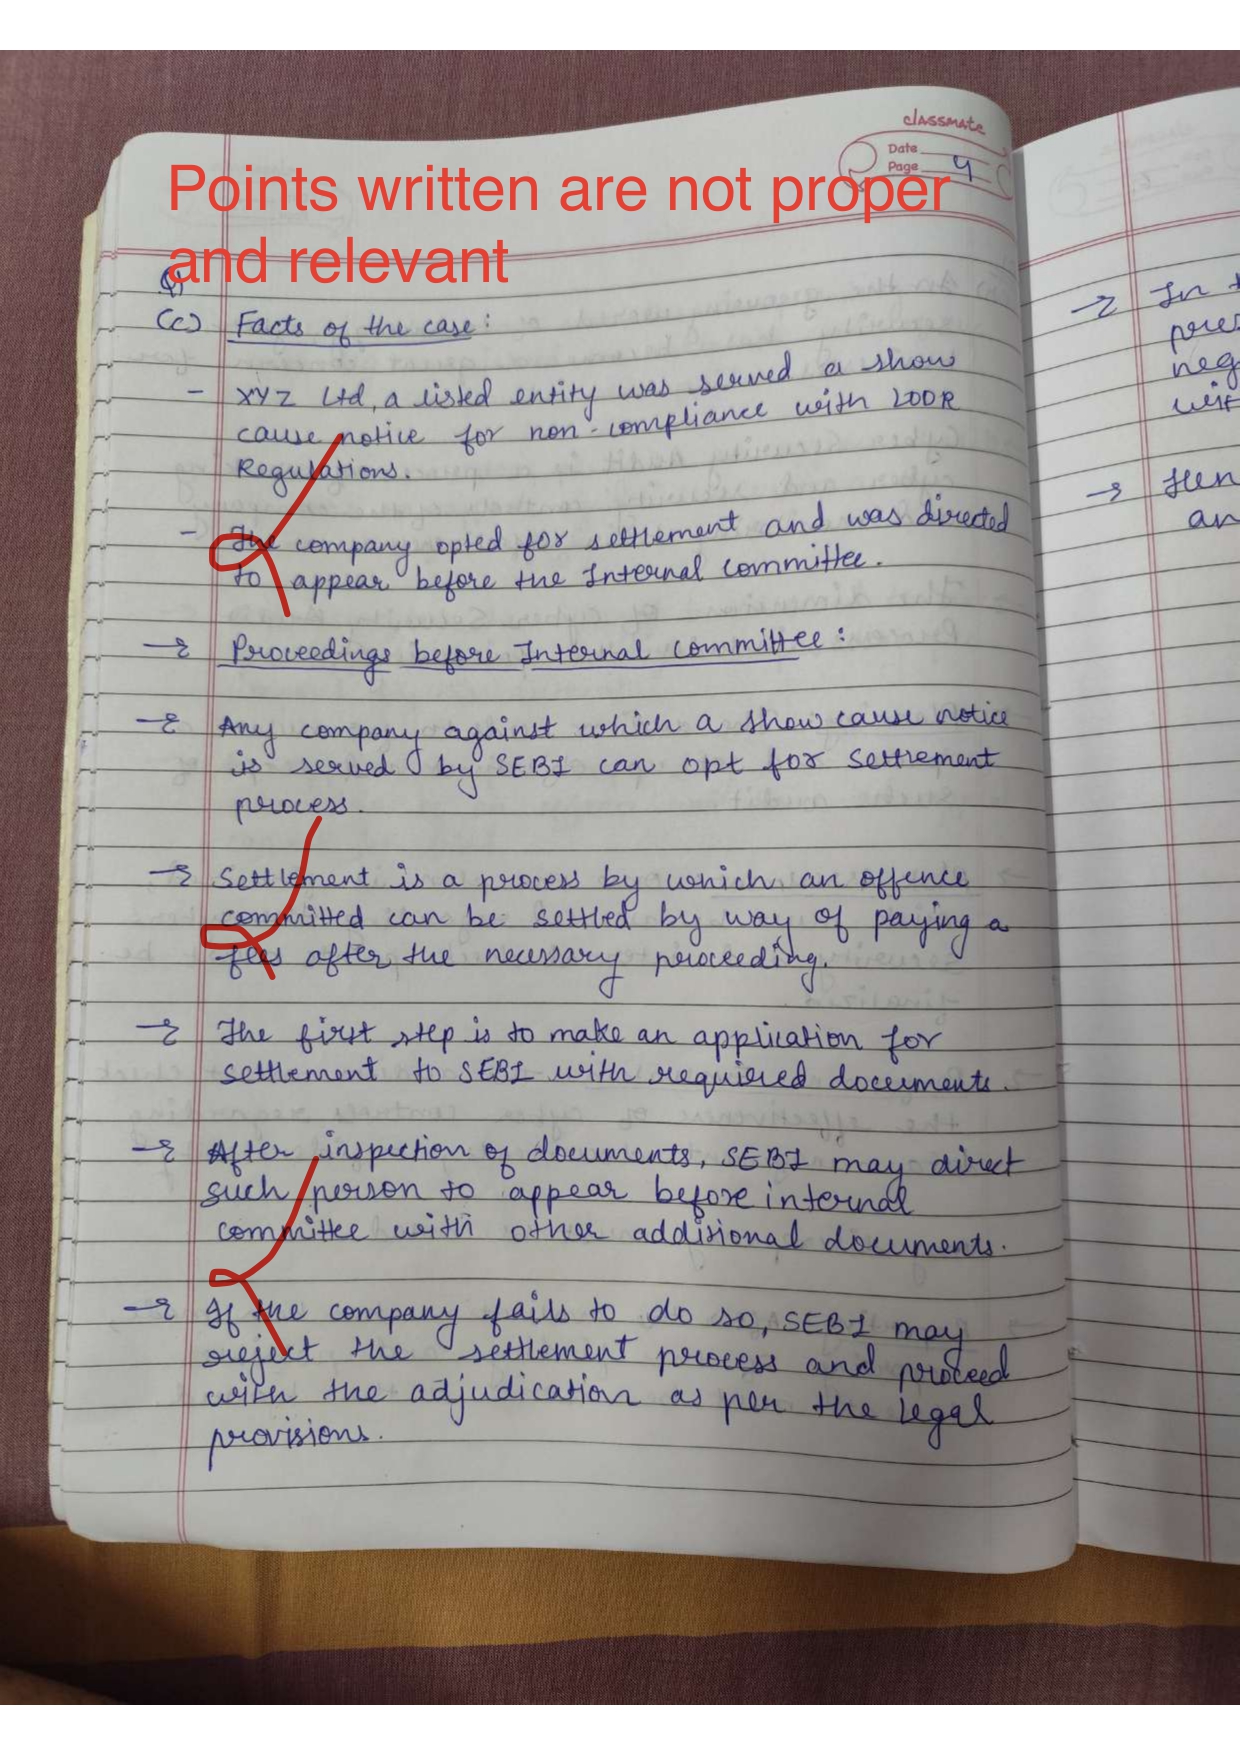 classmate
Date
Page 4
Points written are not proper
and relevant
Q1
(c) Facts of the case:
- XYZ Ltd, a listed entity was served a show
cause notice for non-compliance with LODR
Regulations.
- The company opted for settlement and was directed
to appear before the Internal committee.
→ Proceedings before Internal committee:
→ Any company against which a show cause notice
is served by SEBI can opt for settlement
process.
→ Settlement is a process by which an offence
committed can be settled by way of paying a
fees after the necessary proceeding.
→ The first step is to make an application for
settlement to SEBI with required documents.
→ After inspection of documents, SEBI may direct
such person to appear before internal
committee with other additional documents.
→ If the company fails to do so, SEBI may
reject the settlement process and proceed
with the adjudication as per the legal
provisions.
→ In
pres
neg
→ Hen
an